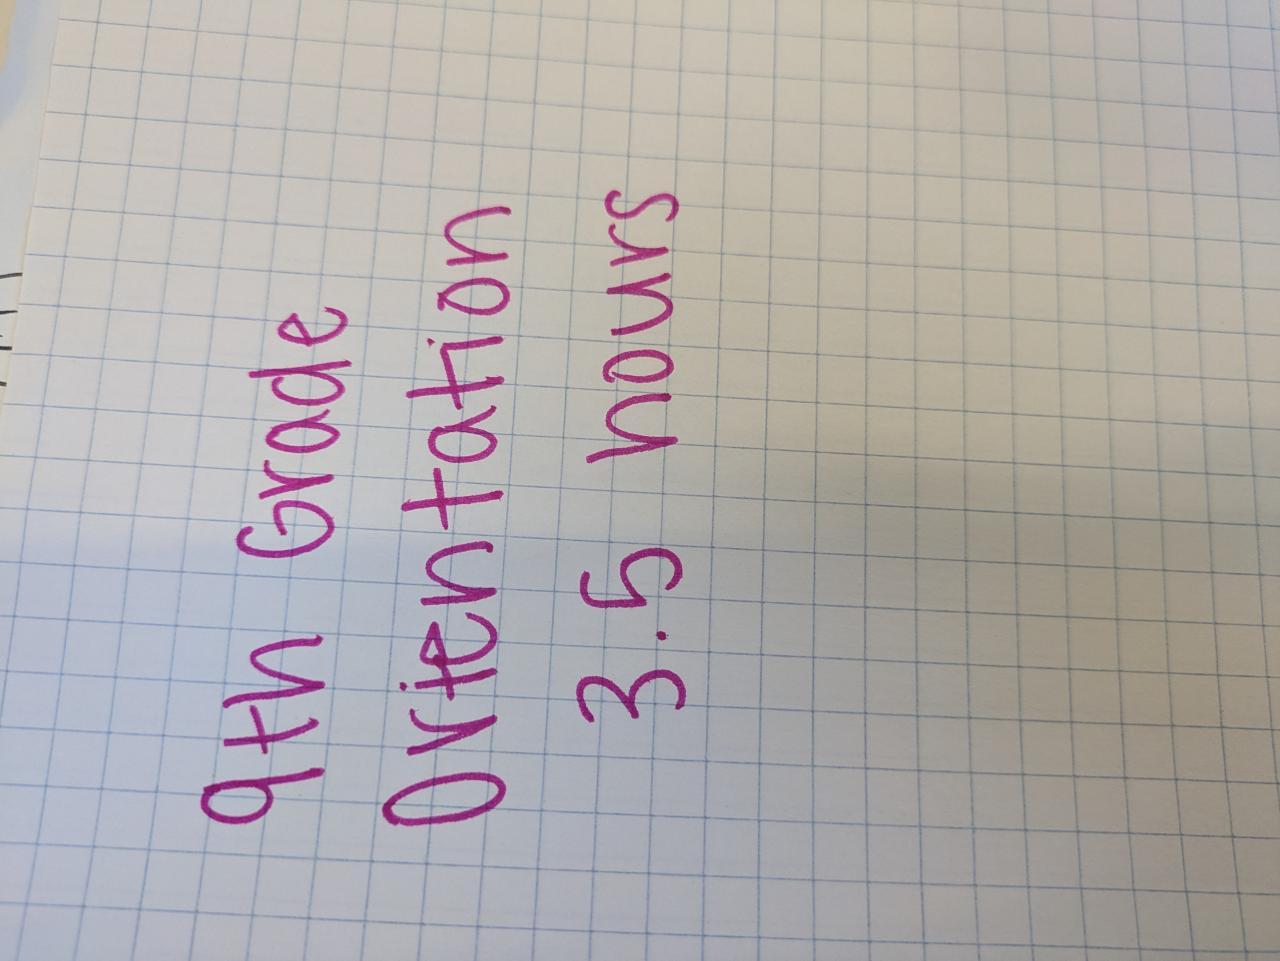 9th Grade
Orientation
3.5 hours